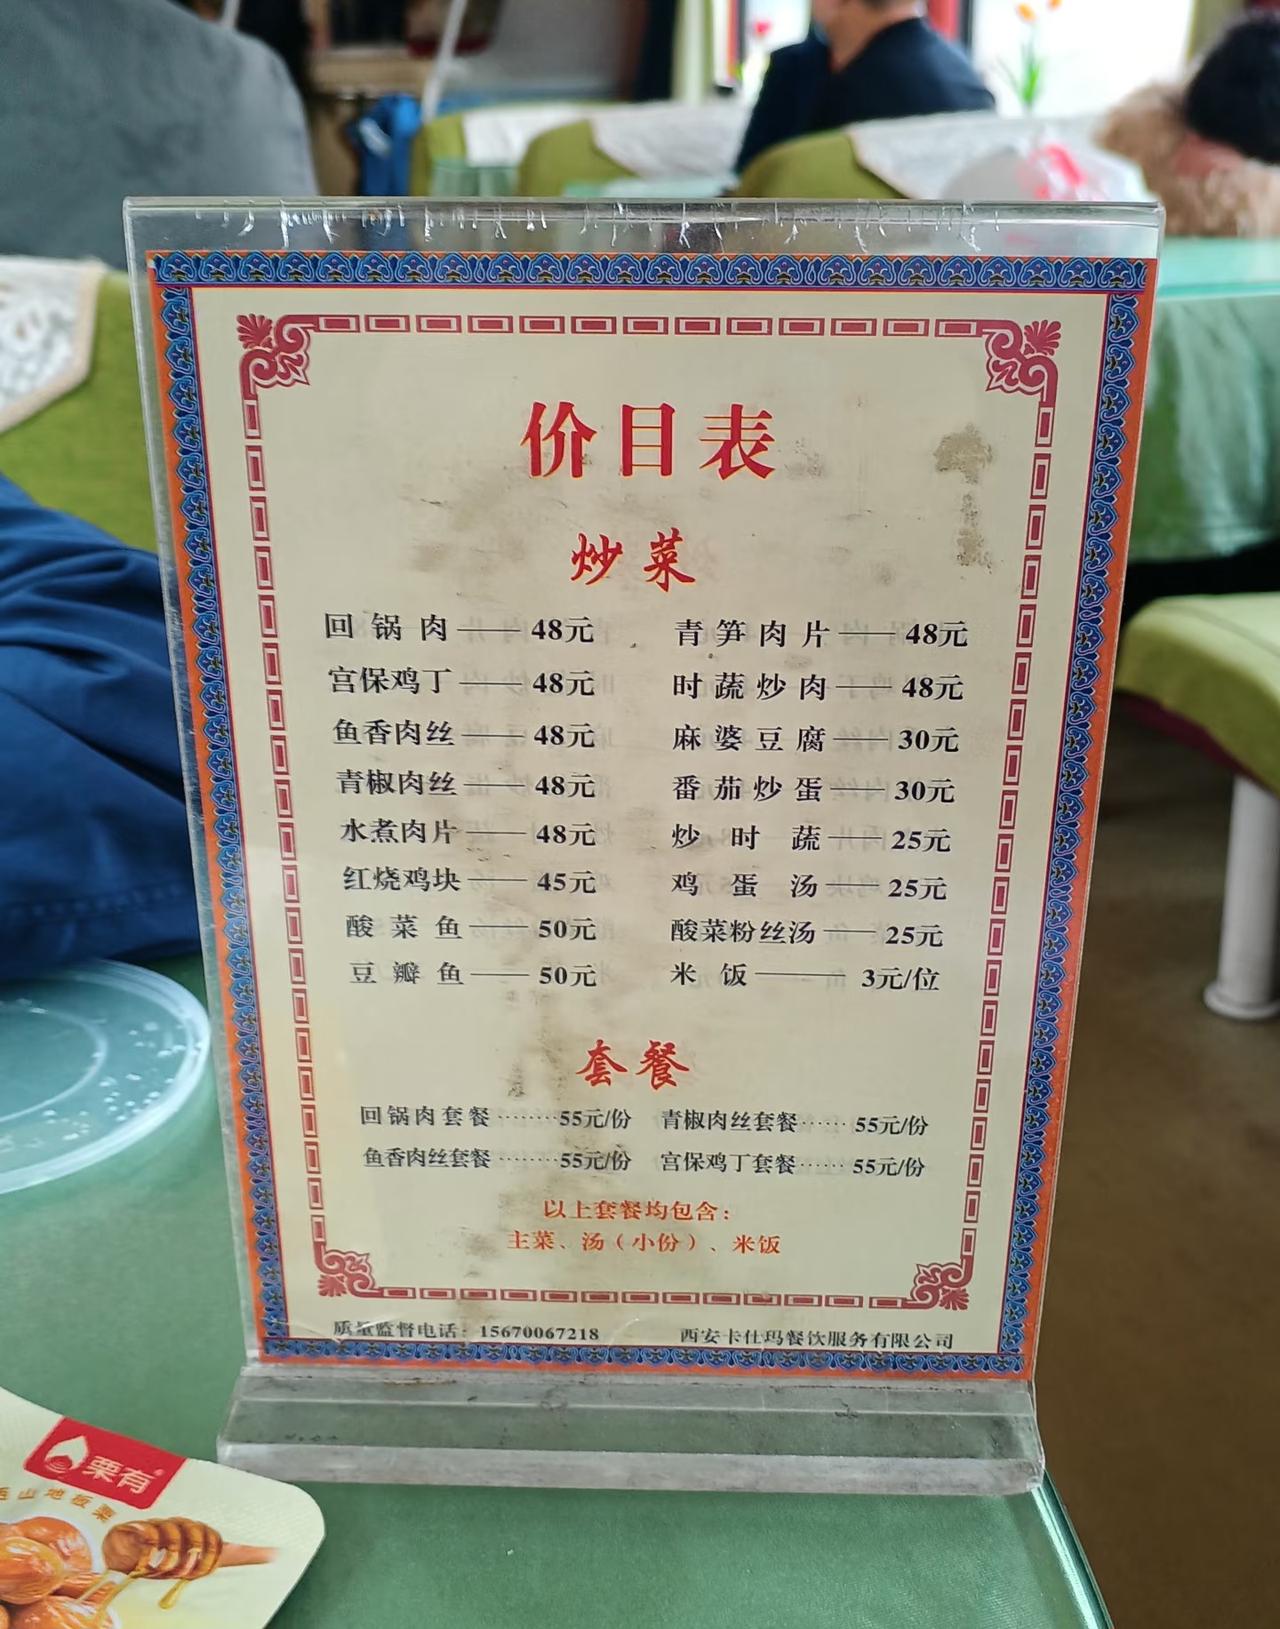 价目表
炒菜
回锅肉——48元 青笋肉片——48元
宫保鸡丁——48元 时蔬炒肉——48元
鱼香肉丝——48元 麻婆豆腐——30元
青椒肉丝——48元 番茄炒蛋——30元
水煮肉片——48元 炒时蔬——25元
红烧鸡块——45元 鸡蛋汤——25元
酸菜鱼——50元 酸菜粉丝汤——25元
豆瓣鱼——50元 米饭———3元/位
套餐
回锅肉套餐········55元/份 青椒肉丝套餐······55元/份
鱼香肉丝套餐········55元/份 宫保鸡丁套餐······55元/份
以上套餐均包含：
主菜、汤（小份）、米饭
质量监督电话：15670067218 西安卡仕玛餐饮服务有限公司
栗有
山地板栗